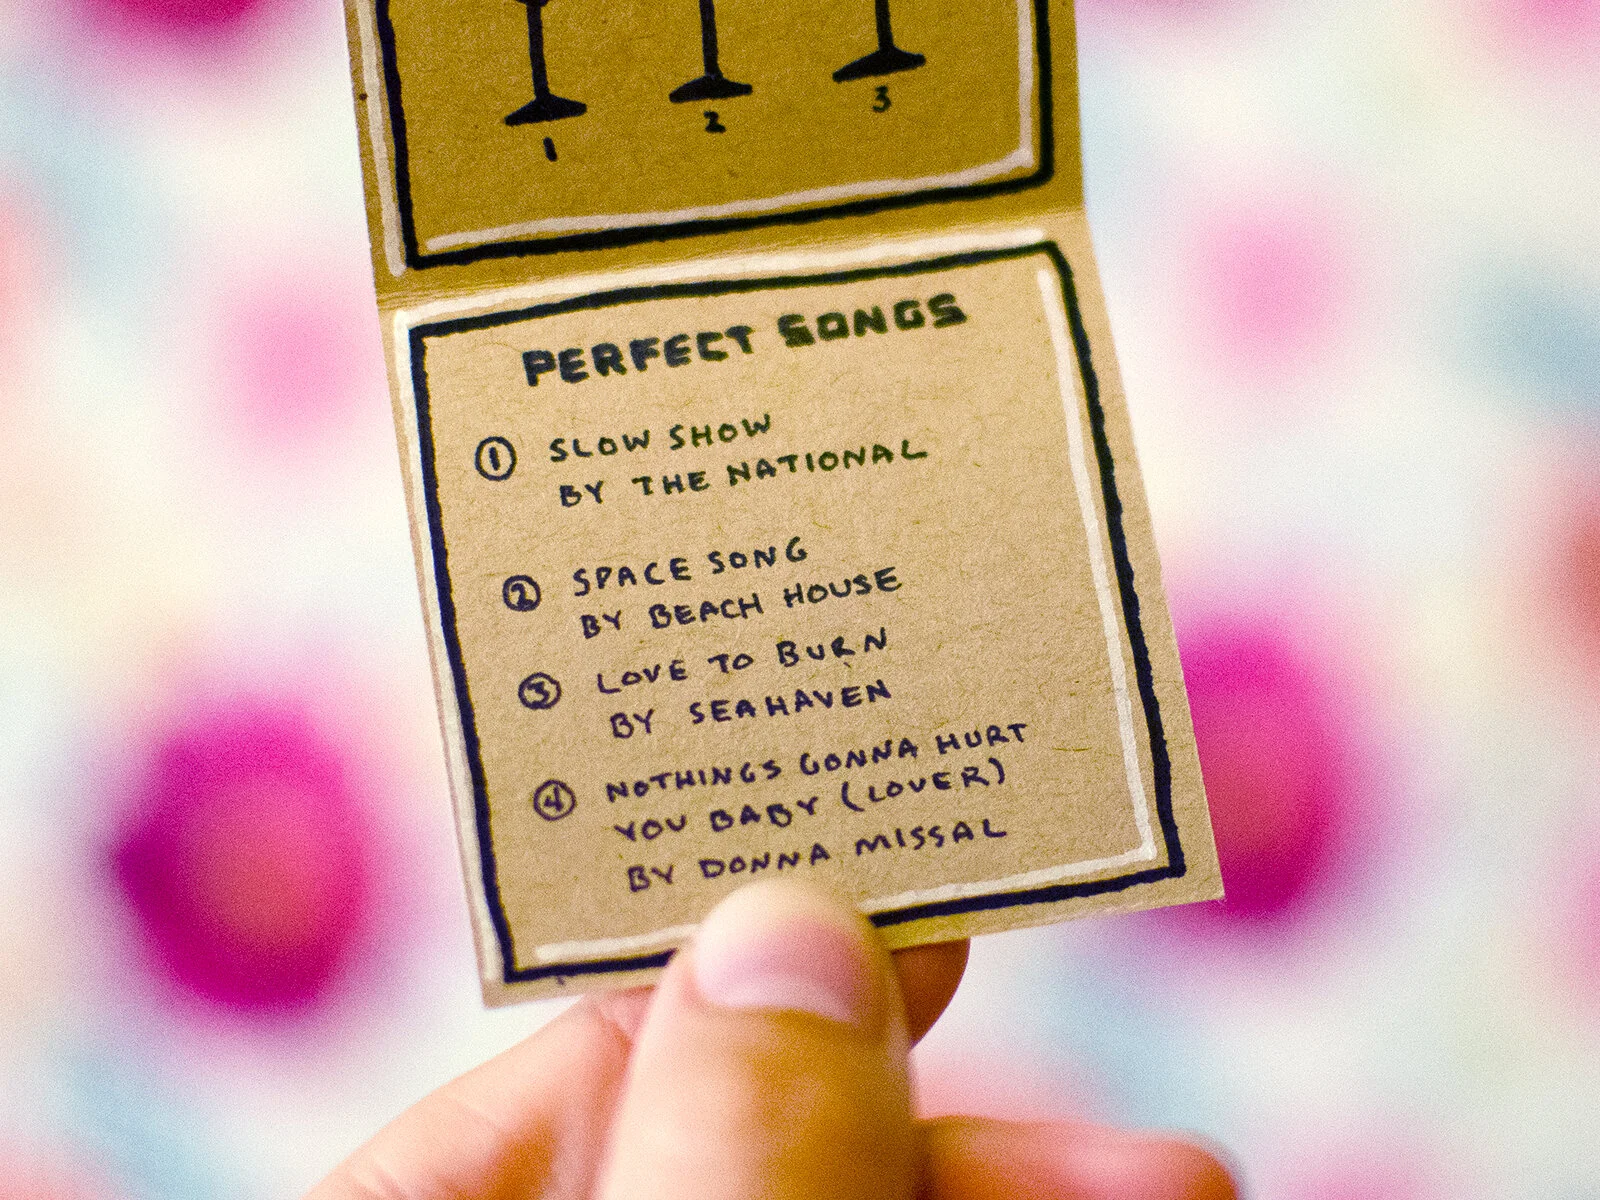 1 2 3
PERFECT SONGS
① SLOW SHOW
BY THE NATIONAL
② SPACE SONG
BY BEACH HOUSE
③ LOVE TO BURN
BY SEAHAVEN
④ NOTHINGS GONNA HURT
YOU BABY (LOVER)
BY DONNA MISSAL